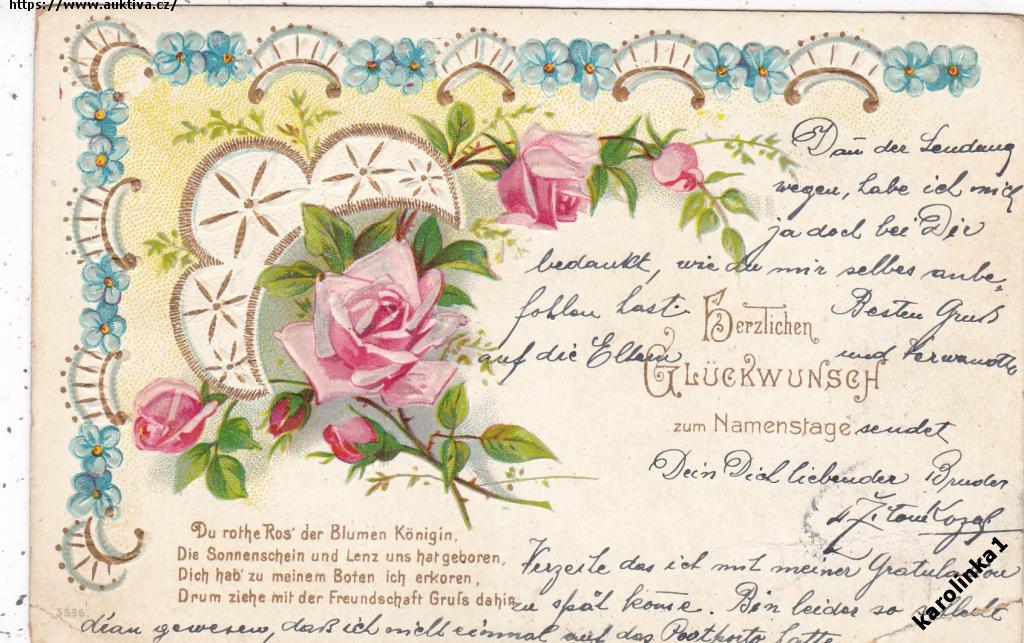 https://www.auktiva.cz/
Dan der Sendung
wegen, habe ich mich
ja doch bei Dir
bedankt, wie du mir selbes anbe-
fohlen hast. Besten Gruß
auf die Eltern und Verwandte
Herzlichen
Glückwunsch
zum Namenstage sendet
Dein Dich liebender Bruder
Du rothe Ros' der Blumen Königin,
Die Sonnenschein und Lenz uns hat geboren,
Dich hab' zu meinem Boten ich erkoren,
Drum ziehe mit der Freundschaft Gruſs dahin.
3556
Verzeihe das ich mit meiner Gratulation
zu spät komme. Bin leider so schlecht
dran gewesen, daß ich nicht einmal auf das Postkarte hatte
karolinka1